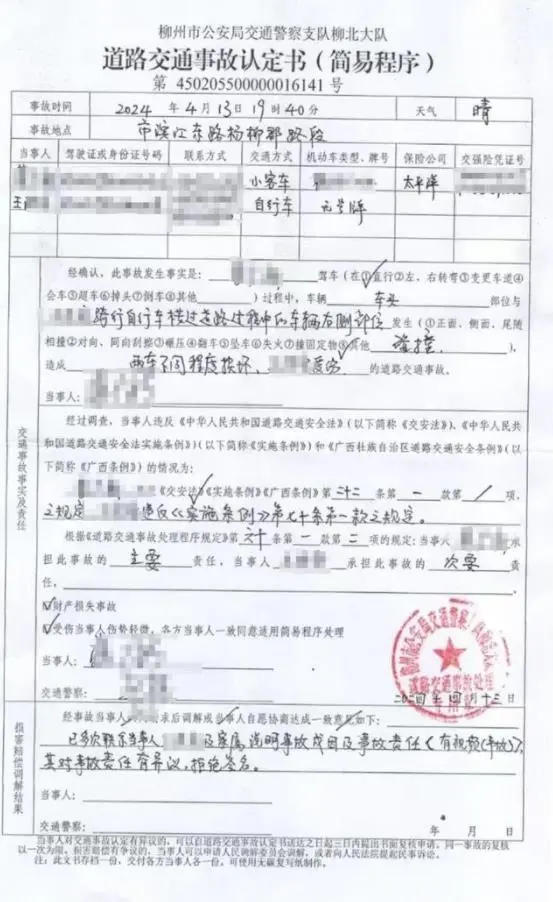 柳州市公安局交通警察支队柳北大队
道路交通事故认定书（简易程序）
第 450205500000016141 号
事故时间 2024 年 4 月 13 日 19 时 40 分 天气 晴
事故地点 市滨江东路杨柳郡路段
当事人 驾驶证或身份证号码 联系方式 交通方式 机动车类型、牌号 保险公司 交强险凭证号
小客车 太平洋
王 自行车 无号牌
交通事故事实及责任
经确认，此事故发生事实是： 驾车（在①直行②左、右转弯③变更车道④
会车⑤超车⑥掉头⑦倒车⑧其他 ）过程中，车辆 车头 部位与
骑行自行车横过道路过程中的车辆右侧部位 发生（①正面、侧面、尾随
相撞②对向、同向刮擦③碾压④翻车⑤坠车⑥失火⑦撞固定物⑧其他 碰撞 ），
造成 两车不同程度损坏、 受伤 的道路交通事故。
当事人：
经过调查，当事人违反《中华人民共和国道路交通安全法》（以下简称《交安法》）、《中华人
民共和国道路交通安全法实施条例》）（以下简称《实施条例》）和《广西壮族自治区道路交通安全条例》（以
下简称《广西条例》）的情况为：
《交安法》《实施条例》《广西条例》第 二十二 条第 一 款第 / 项，
之规定 违反《实施条例》第七十条第一款之规定。
根据《道路交通事故处理程序规定》第 六十 条第 一 款第 二 项的规定：当事人 承
担此事故的 主要 责任，当事人 承担此事故的 次要 责
任。
☑财产损失事故
☑受伤当事人伤势轻微，各方当事人一致同意适用简易程序处理
当事人：
交通警察：
二〇二四年四月十三日
损害赔偿调解结果
经事故当事人 求后调解或当事人自愿协商达成一致意见如下：
已多次联系当事人 及家属说明事故成因及事故责任（有视频（事故）），
其对事故责任有异议，拒绝签名。
当事人：
交通警察： 年 月 日
当事人对交通事故认定有异议的，可以自道路交通事故认定书送达之日起三日内提出书面复核申请。同一事故的复核
以一次为限。损害赔偿有争议的，当事人可以申请人民调解委员会调解，或者向人民法院提起民事诉讼。
注：此文书存档一份，交付各方当事人各一份。可使用无碳复写纸制作。